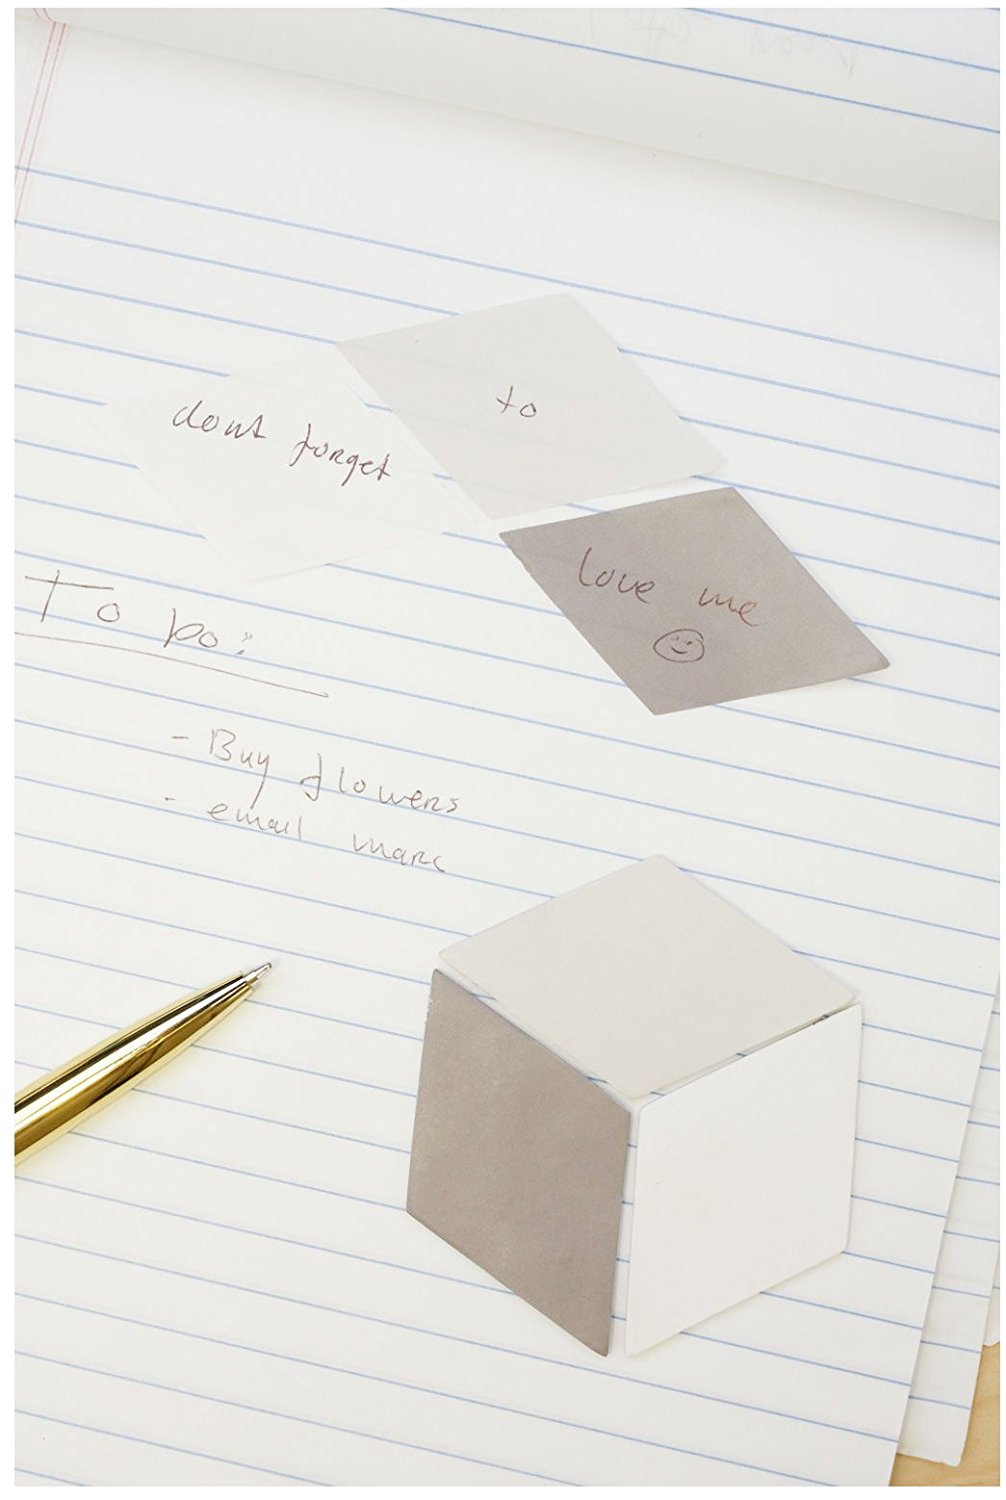 dont forget
to
love me
To Do:
- Buy flowers
- email marc